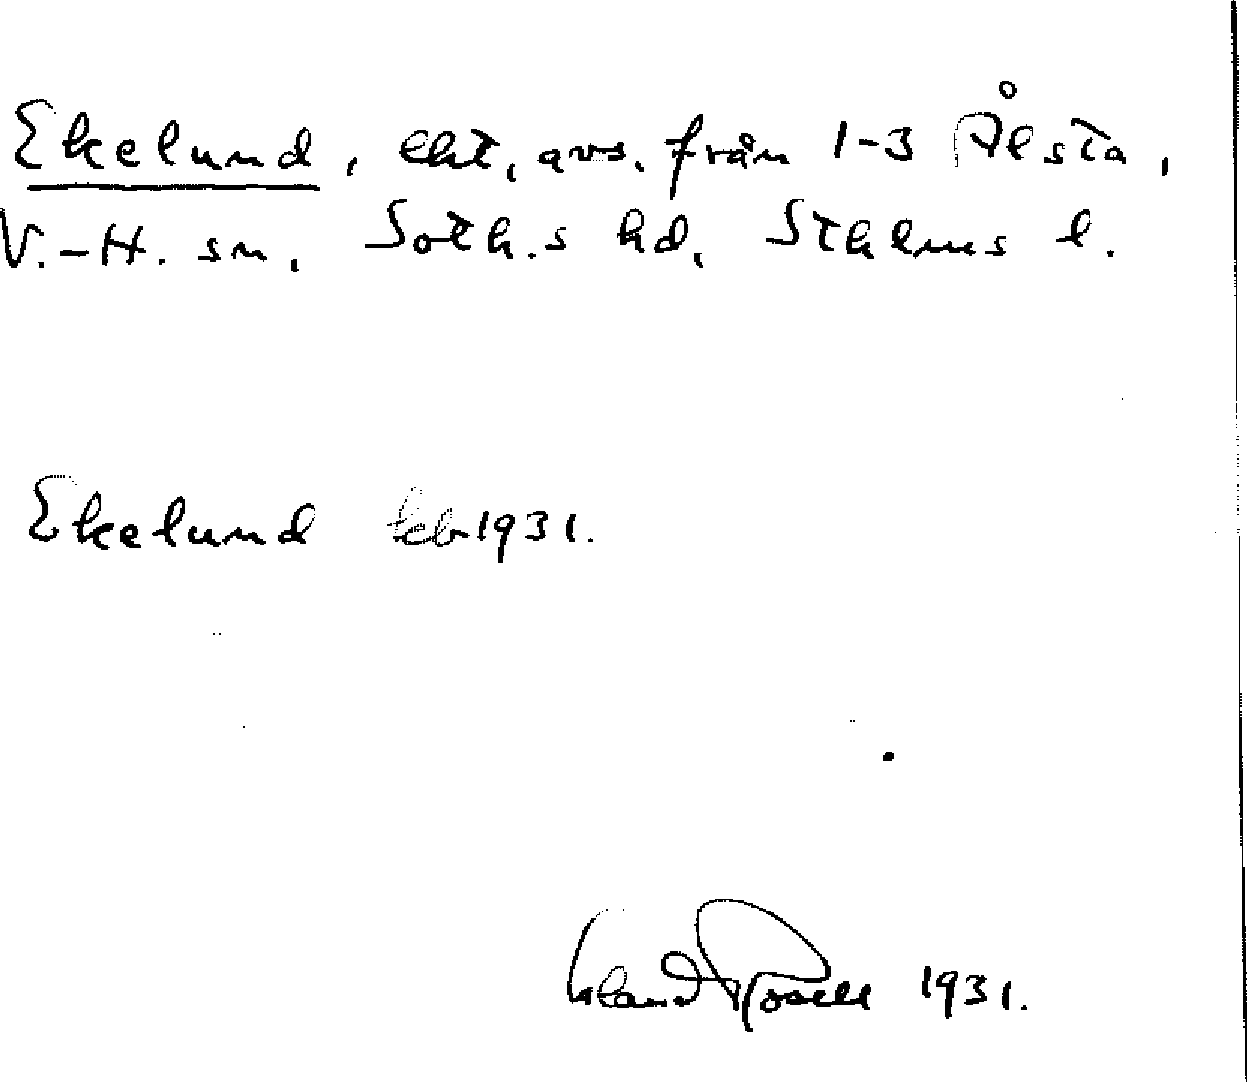 Ekelund, lht, avs. från 1-3 Ålsta,
V.-H. sn, Soth.s hd, Sthlms l.
Ekelund feb 1931.
Erland Rosell 1931.